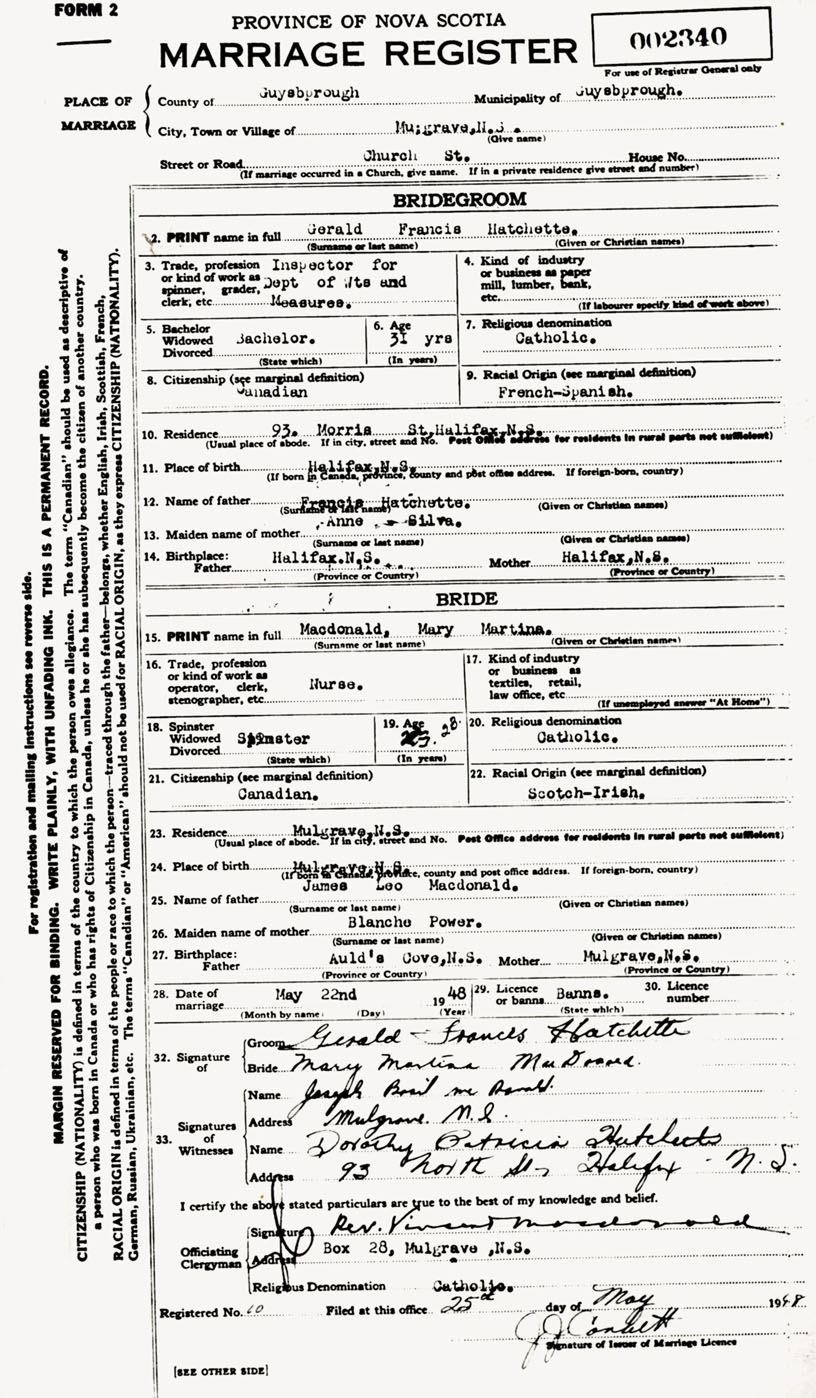 FORM 2
PROVINCE OF NOVA SCOTIA
MARRIAGE REGISTER
002340
For use of Registrar General only
PLACE OF MARRIAGE
County of Guysbprough Municipality of Guysbprough.
City, Town or Village of Mulgrave,N.S.
(Give name)
Street or Road Church St. House No.
(If marriage occurred in a Church, give name. If in a private residence give street and number)
BRIDEGROOM
2. PRINT name in full Gerald Francis Hatchette.
(Surname or last name) (Given or Christian names)
3. Trade, profession or kind of work as spinner, grader, clerk, etc. Inspector for Dept of Wts and Measures.
4. Kind of industry or business as paper mill, lumber, bank, etc.
(If labourer specify kind of work above)
5. Bachelor Widowed Divorced Bachelor.
(State which)
6. Age 31 yrs
(In years)
7. Religious denomination
Catholic.
8. Citizenship (see marginal definition)
Canadian
9. Racial Origin (see marginal definition)
French-Spanish.
10. Residence 93. Morris St,Halifax,N.S.
(Usual place of abode. If in city, street and No. Post Office address for residents in rural parts not sufficient)
11. Place of birth Halifax,N.S.
(If born in Canada, province, county and post office address. If foreign-born, country)
12. Name of father Francis Hatchette.
(Surname or last name) (Given or Christian names)
13. Maiden name of mother Anne Silva.
(Surname or last name) (Given or Christian names)
14. Birthplace: Father Halifax.N.S. Mother Halifax,N.S.
(Province or Country) (Province or Country)
BRIDE
15. PRINT name in full Macdonald, Mary Martina.
(Surname or last name) (Given or Christian names)
16. Trade, profession or kind of work as operator, clerk, stenographer, etc. Nurse.
17. Kind of industry or business as textiles, retail, law office, etc.
(If unemployed answer "At Home")
18. Spinster Widowed Divorced Spinster
(State which)
19. Age 28
(In years)
20. Religious denomination
Catholic.
21. Citizenship (see marginal definition)
Canadian.
22. Racial Origin (see marginal definition)
Scotch-Irish.
23. Residence Mulgrave,N.S.
(Usual place of abode. If in city, street and No. Post Office address for residents in rural parts not sufficient)
24. Place of birth Mulgrave,N.S.
(If born in Canada, province, county and post office address. If foreign-born, country)
25. Name of father James Leo Macdonald.
(Surname or last name) (Given or Christian names)
26. Maiden name of mother Blanche Power.
(Surname or last name) (Given or Christian names)
27. Birthplace: Father Auld's Cove,N.S. Mother Mulgrave,N.S.
(Province or Country) (Province or Country)
28. Date of marriage May 22nd 1948
(Month by name) (Day) (Year)
29. Licence or banns Banns.
(State which)
30. Licence number
32. Signature of
Groom Gerald Frances Hatchette
Bride Mary Martina MacDonald.
33. Signatures of Witnesses
Name Joseph Basil McDonald.
Address Mulgrave. N.S.
Name Dorothy Patricia Hatchette
Address 93 North St, Halifax N.S.
I certify the above stated particulars are true to the best of my knowledge and belief.
Officiating Clergyman
Signature Rev. Vincent Macdonald
Address Box 28, Mulgrave ,N.S.
Religious Denomination Catholic.
Registered No. 10 Filed at this office 25th day of May 1948
J.J. Corbett
Signature of Issuer of Marriage Licence
[SEE OTHER SIDE]
For registration and mailing instructions see reverse side.
MARGIN RESERVED FOR BINDING. WRITE PLAINLY, WITH UNFADING INK. THIS IS A PERMANENT RECORD.
CITIZENSHIP (NATIONALITY) is defined in terms of the country to which the person owes allegiance. The term "Canadian" should be used as descriptive of
a person who was born in Canada or who has rights of Citizenship in Canada, unless he or she has subsequently become the citizen of another country.
RACIAL ORIGIN is defined in terms of the people or race to which the person—traced through the father—belongs, whether English, Irish, Scottish, French,
German, Russian, Ukrainian, etc. The terms "Canadian" or "American" should not be used for RACIAL ORIGIN, as they express CITIZENSHIP (NATIONALITY).